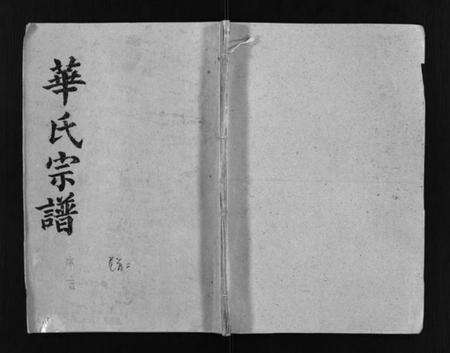 華氏宗譜
卷首二